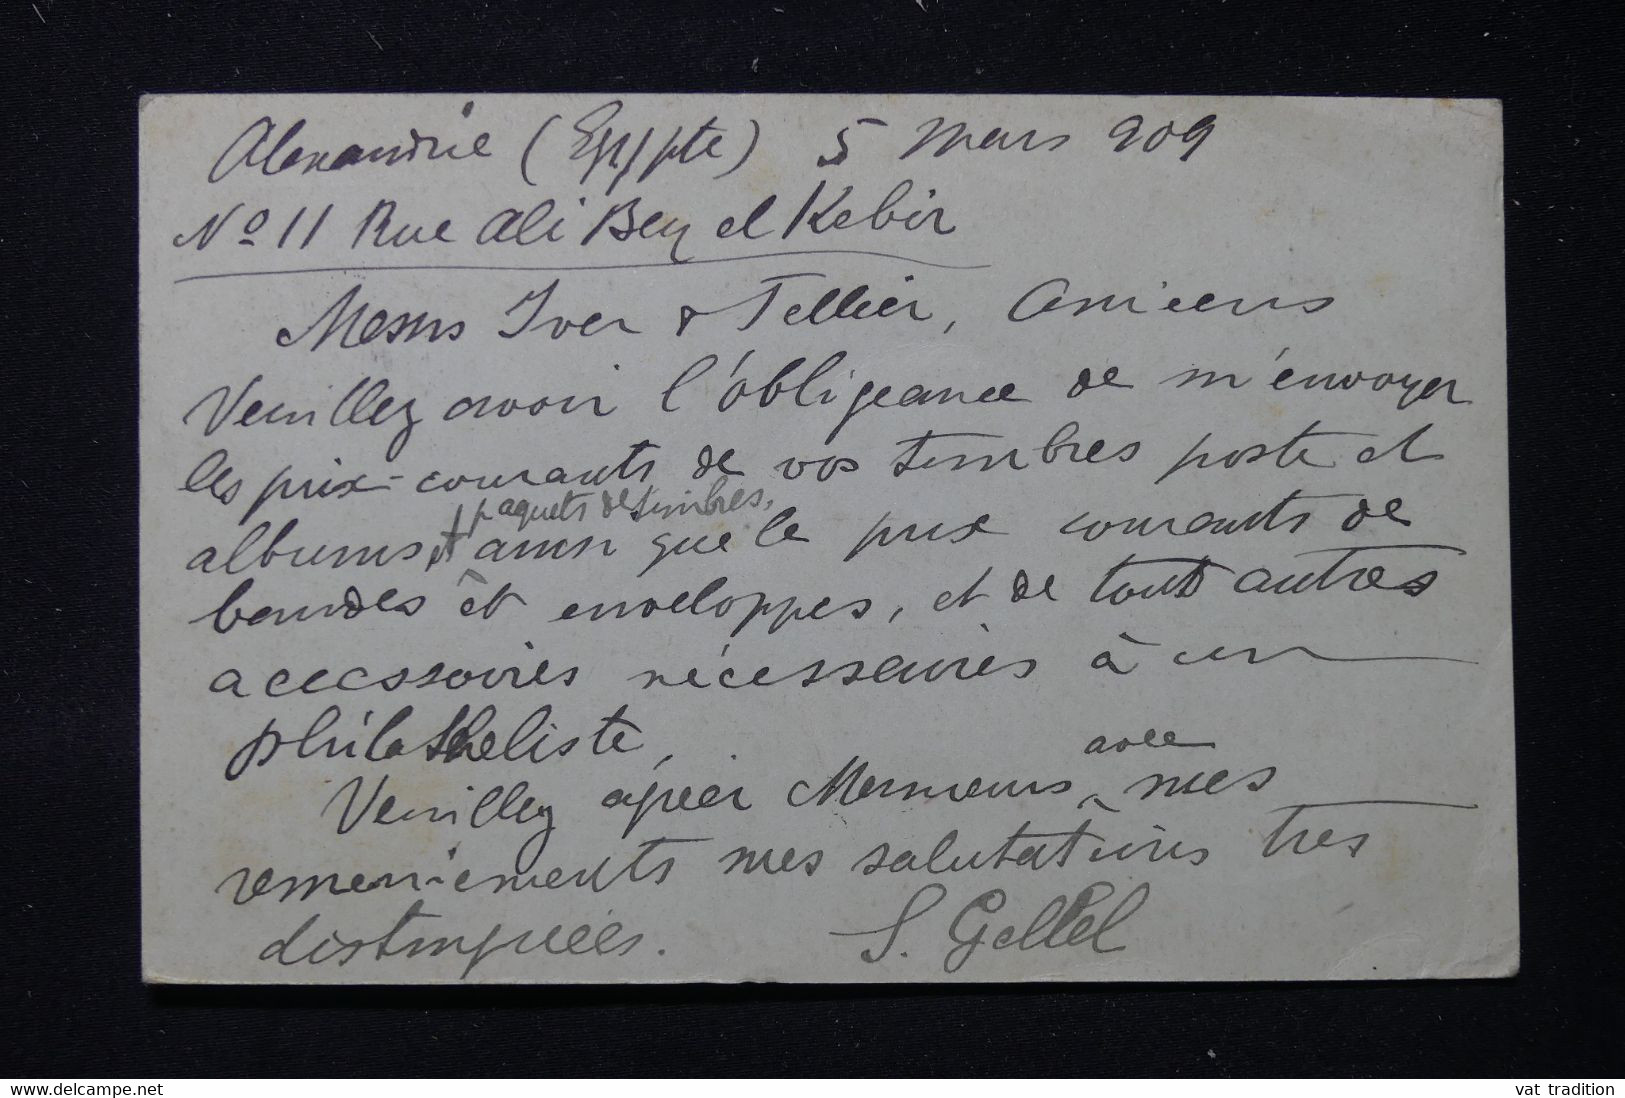 Alexandrie (Egypte) 5 Mars 909
No 11 Rue Ali Bey el Kebir
Messrs Iver & Tellier, Amiens
Veuillez avoir l'obligeance de m'envoyer
les prix-courants de vos timbres poste et
paquets de timbres,
albums, et ainsi que le prix courants de
bandes et enveloppes, et de tout autres
accessoires nécessaires à un
philatheliste,
avec
Veuillez agréer Messieurs, mes
remerciements mes salutations très
distinguées. S. Gellel
www.delcampe.net
vat tradition